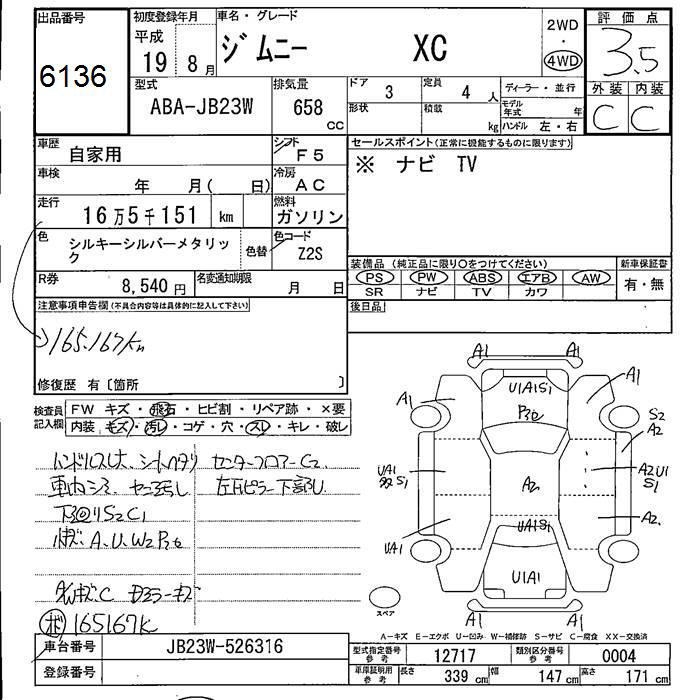 出品番号
6136
初度登録年月
平成
19 8月
車名・グレード
ジムニー XC
2WD
・
4WD
評価点
3.5
外装 内装
C C
型式
ABA-JB23W
排気量
658
cc
ドア
3
定員
4 人
形状
積載
kg
ディーラー・並行
モデル年式 年
ハンドル 左・右
車歴
自家用
シフト
F5
車検
年 月( 日)
冷房
AC
走行
16万5千151 km
燃料
ガソリン
色
シルキーシルバーメタリック
色替
色コード
Z2S
R券
8,540 円
名変通知期限
月 日
セールスポイント(正常に機能するものに限ります)
※ ナビ TV
装備品 (純正品に限り○をつけてください)
PS PW ABS エアB AW
SR ナビ TV カワ
新車保証書
有・無
後日品
注意事項申告欄(不具合内容等は具体的に記入して下さい)
165.167Km
修復歴 有〔箇所 〕
検査員記入欄
FW キズ・飛石・ヒビ割・リペア跡・×要
内装 キズ・汚レ・コゲ・穴・スレ・キレ・破レ
センターフロアーC2
左Fピラー下部U
A.U.W2
165167K
A1 A1
A1
A1
U1A1S1
S2
A2
UA1
S1
A2
A2U1
S1
A2
UA1S1
UA1
U1A1
A1 A1
スペア
A-キズ E-エクボ U-凹み W-補修跡 S-サビ C-腐食 XX-交換済
車台番号
JB23W-526316
登録番号
型式指定番号
参考
12717
類別区分番号
参考
0004
車庫証明用
参考
長さ
339 cm
幅
147 cm
高さ
171 cm